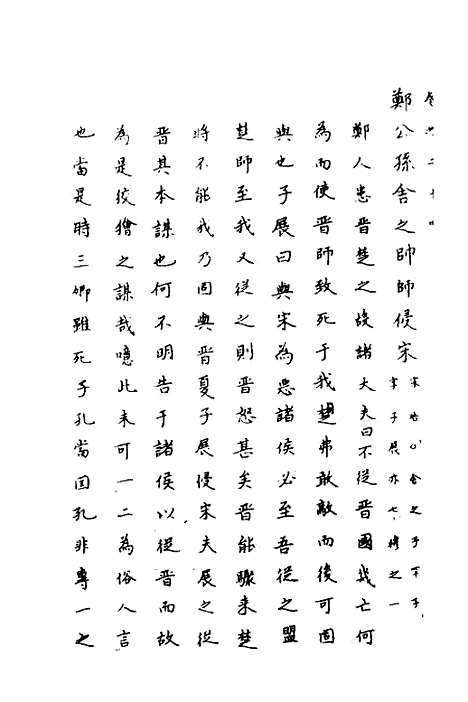 卷六二十四
鄭公孫舍之帥師侵宋
鄭人患晉楚之故諸大夫曰不從晉國幾亡何
為而使晉師致死于我楚弗敢敵而後可固
與也子展曰與宋為惡諸侯必至吾從之盟
楚師至我又從之則晉怒甚矣晉能驟來楚
將不能我乃固與晉夏子展侵宋夫展之從
晉其本謀也何不明告于諸侯以從晉而故
為是狡獪之謀哉噫此未可一二為俗人言
也當是時三卿雖死子孔當國孔非專一之